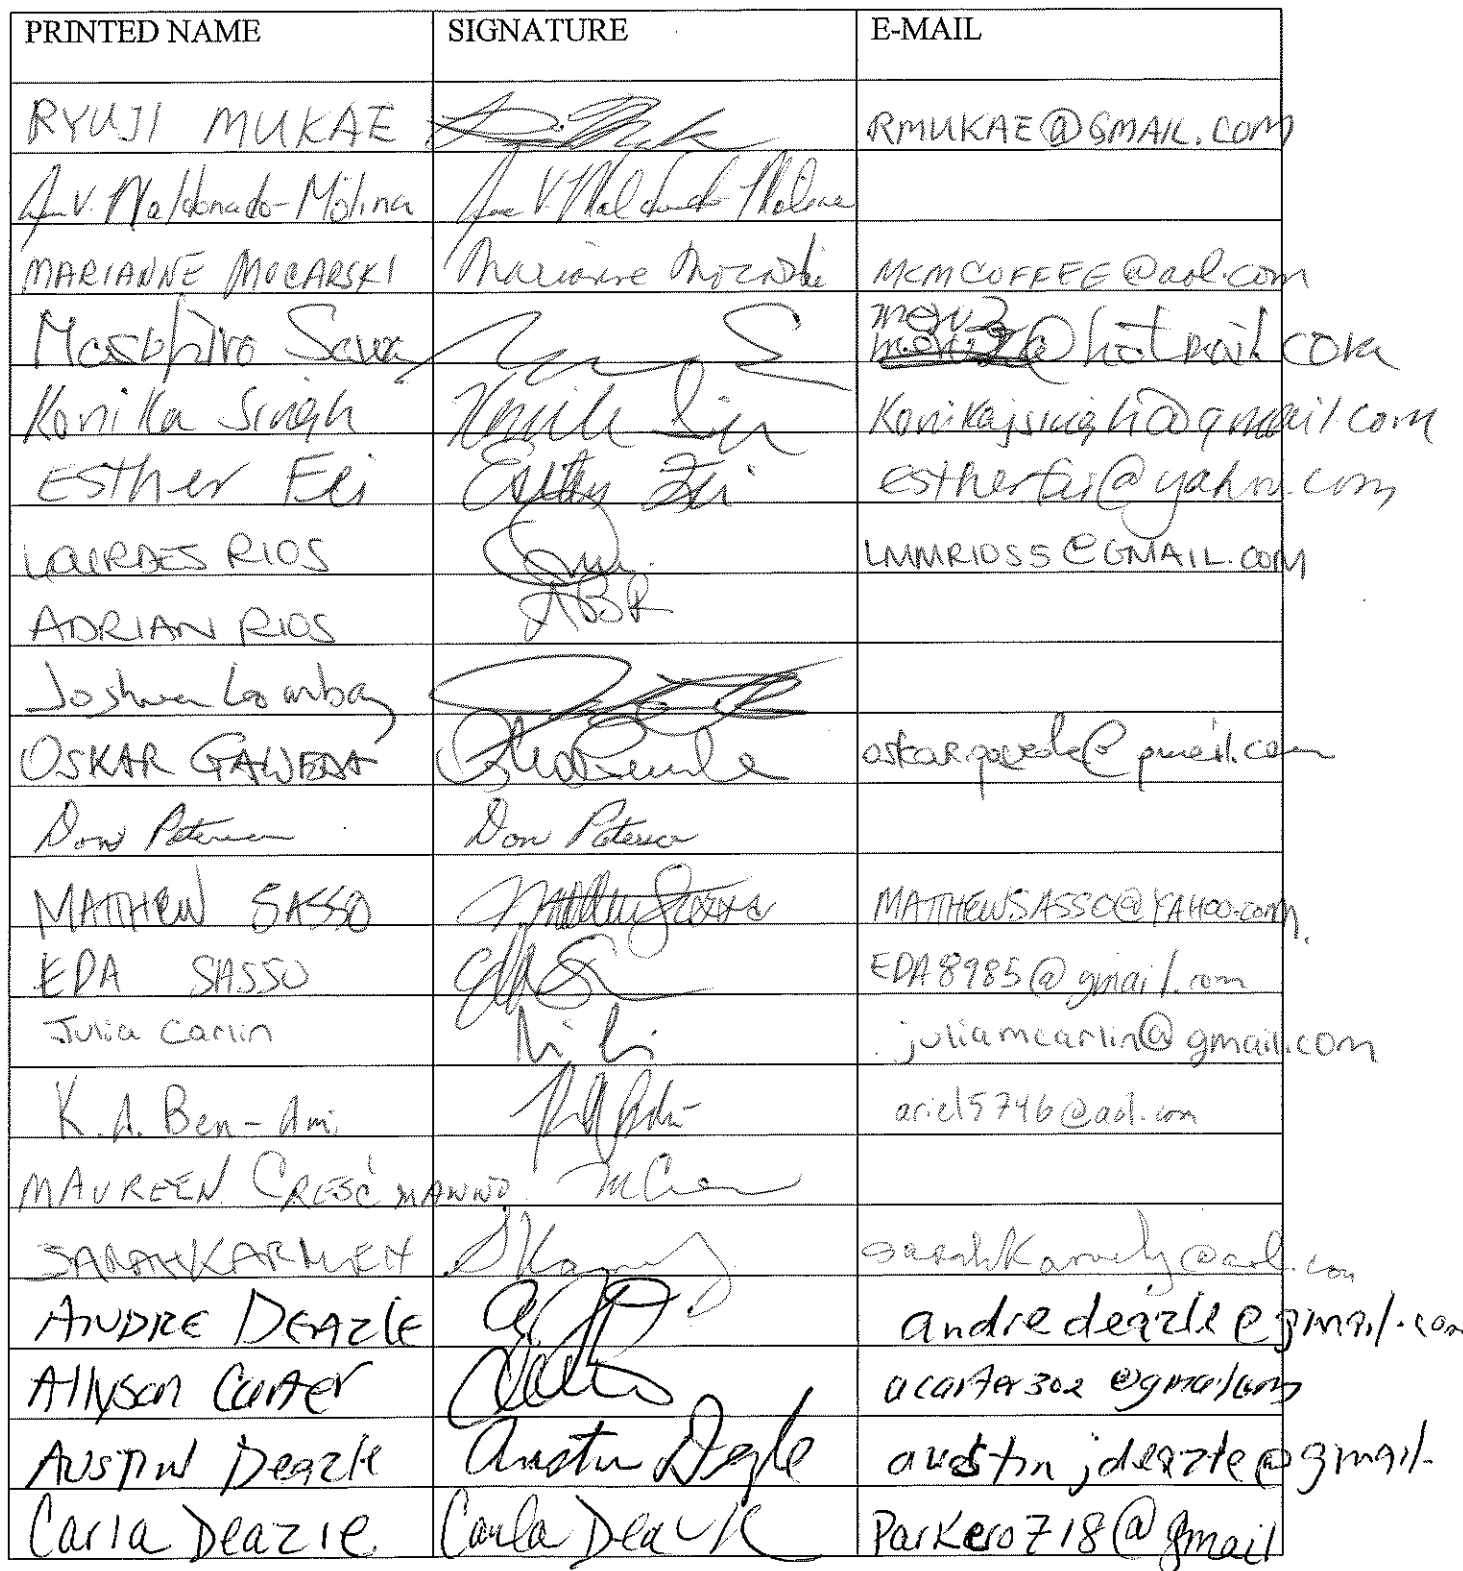 PRINTED NAME SIGNATURE E-MAIL
RYUJI MUKAE RMUKAE@GMAIL.COM
V. Maldonado-Molina V. Maldonado-Molina
MARIANNE MOCARSKI Marianne Mocarski MCMCOFFEE@aol.com
Masahiro @hotmail.com
Konika Singh Konikajsingh@gmail.com
Esther Fei Esther Fei estherfei@yahoo.com
LOURDES RIOS LMMRIOS5@GMAIL.COM
ADRIAN RIOS ABR
Joshua Lombay
OSKAR GAWEDA oskargaweda@gmail.com
Don Peterson Don Peterson
MATTHEW SASSO MATTHEWSASSO@YAHOO.COM
EDA SASSO EDA8985@gmail.com
Julia Carlin juliamcarlin@gmail.com
K.A. Ben-Ami ariel5746@aol.com
MAUREEN CRESCIMANNO
SARAH KARMELY sarahKarmely@aol.com
ANDRE DEAZLE andredeazle@gmail.com
Allyson Carter acarter302@gmail.com
AUSTIN Deazle Austin Deazle austinjdeazle@gmail.
Carla Deazle Carla Deazle Parkero718@gmail